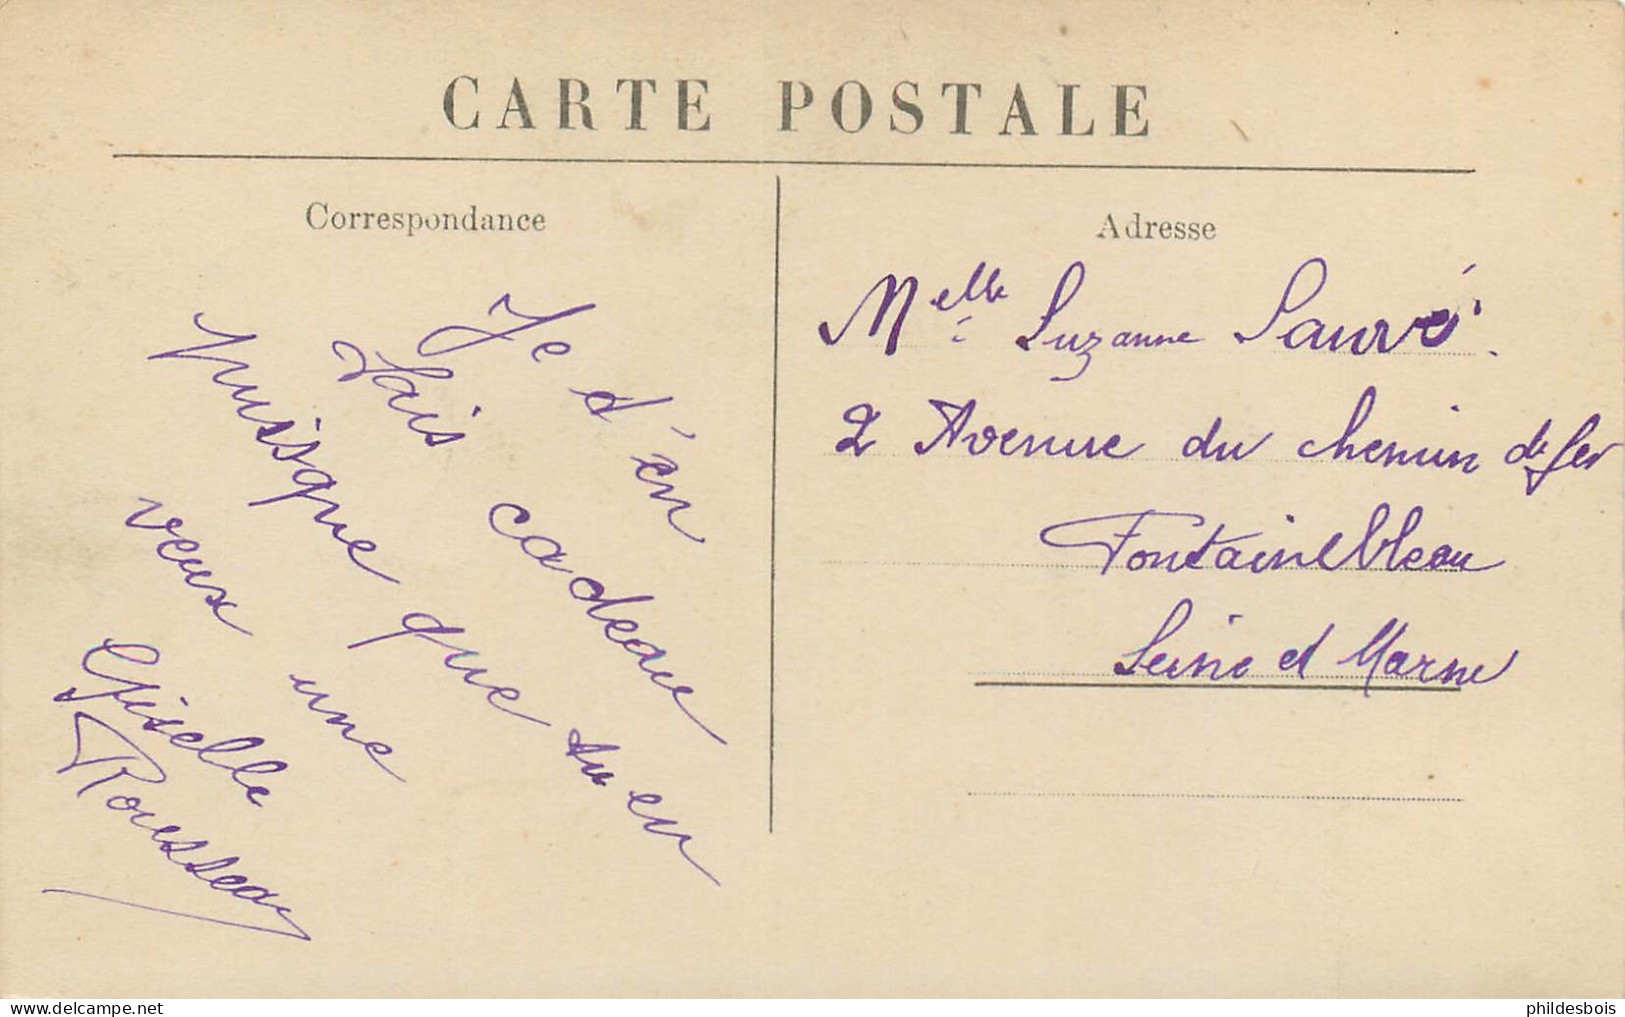 CARTE POSTALE
Correspondance
Je d'en
fais cadeau
puisque que tu en
veux une
Giselle
Rousseau
Adresse
Melle Suzanne Sauvé.
2 Avenue du chemin de fer
Fontainebleau
Seine et Marne
delcampe.net
phildesbois